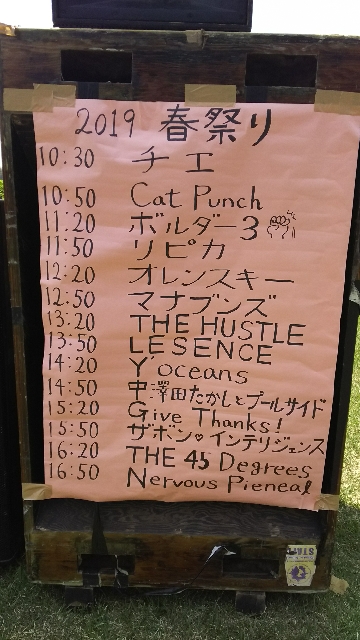 2019 春祭り
10:30 チエ
10:50 Cat Punch
11:20 ボルダー3
11:50 リピカ
12:20 オレンスキー
12:50 マナブンズ
13:20 THE HUSTLE
13:50 LESENCE
14:20 Y'oceans
14:50 中澤田たかしとプールサイド
15:20 Give Thanks!
15:50 ザボン♥インテリジェンス
16:20 THE 45 Degrees
16:50 Nervous Pieneal